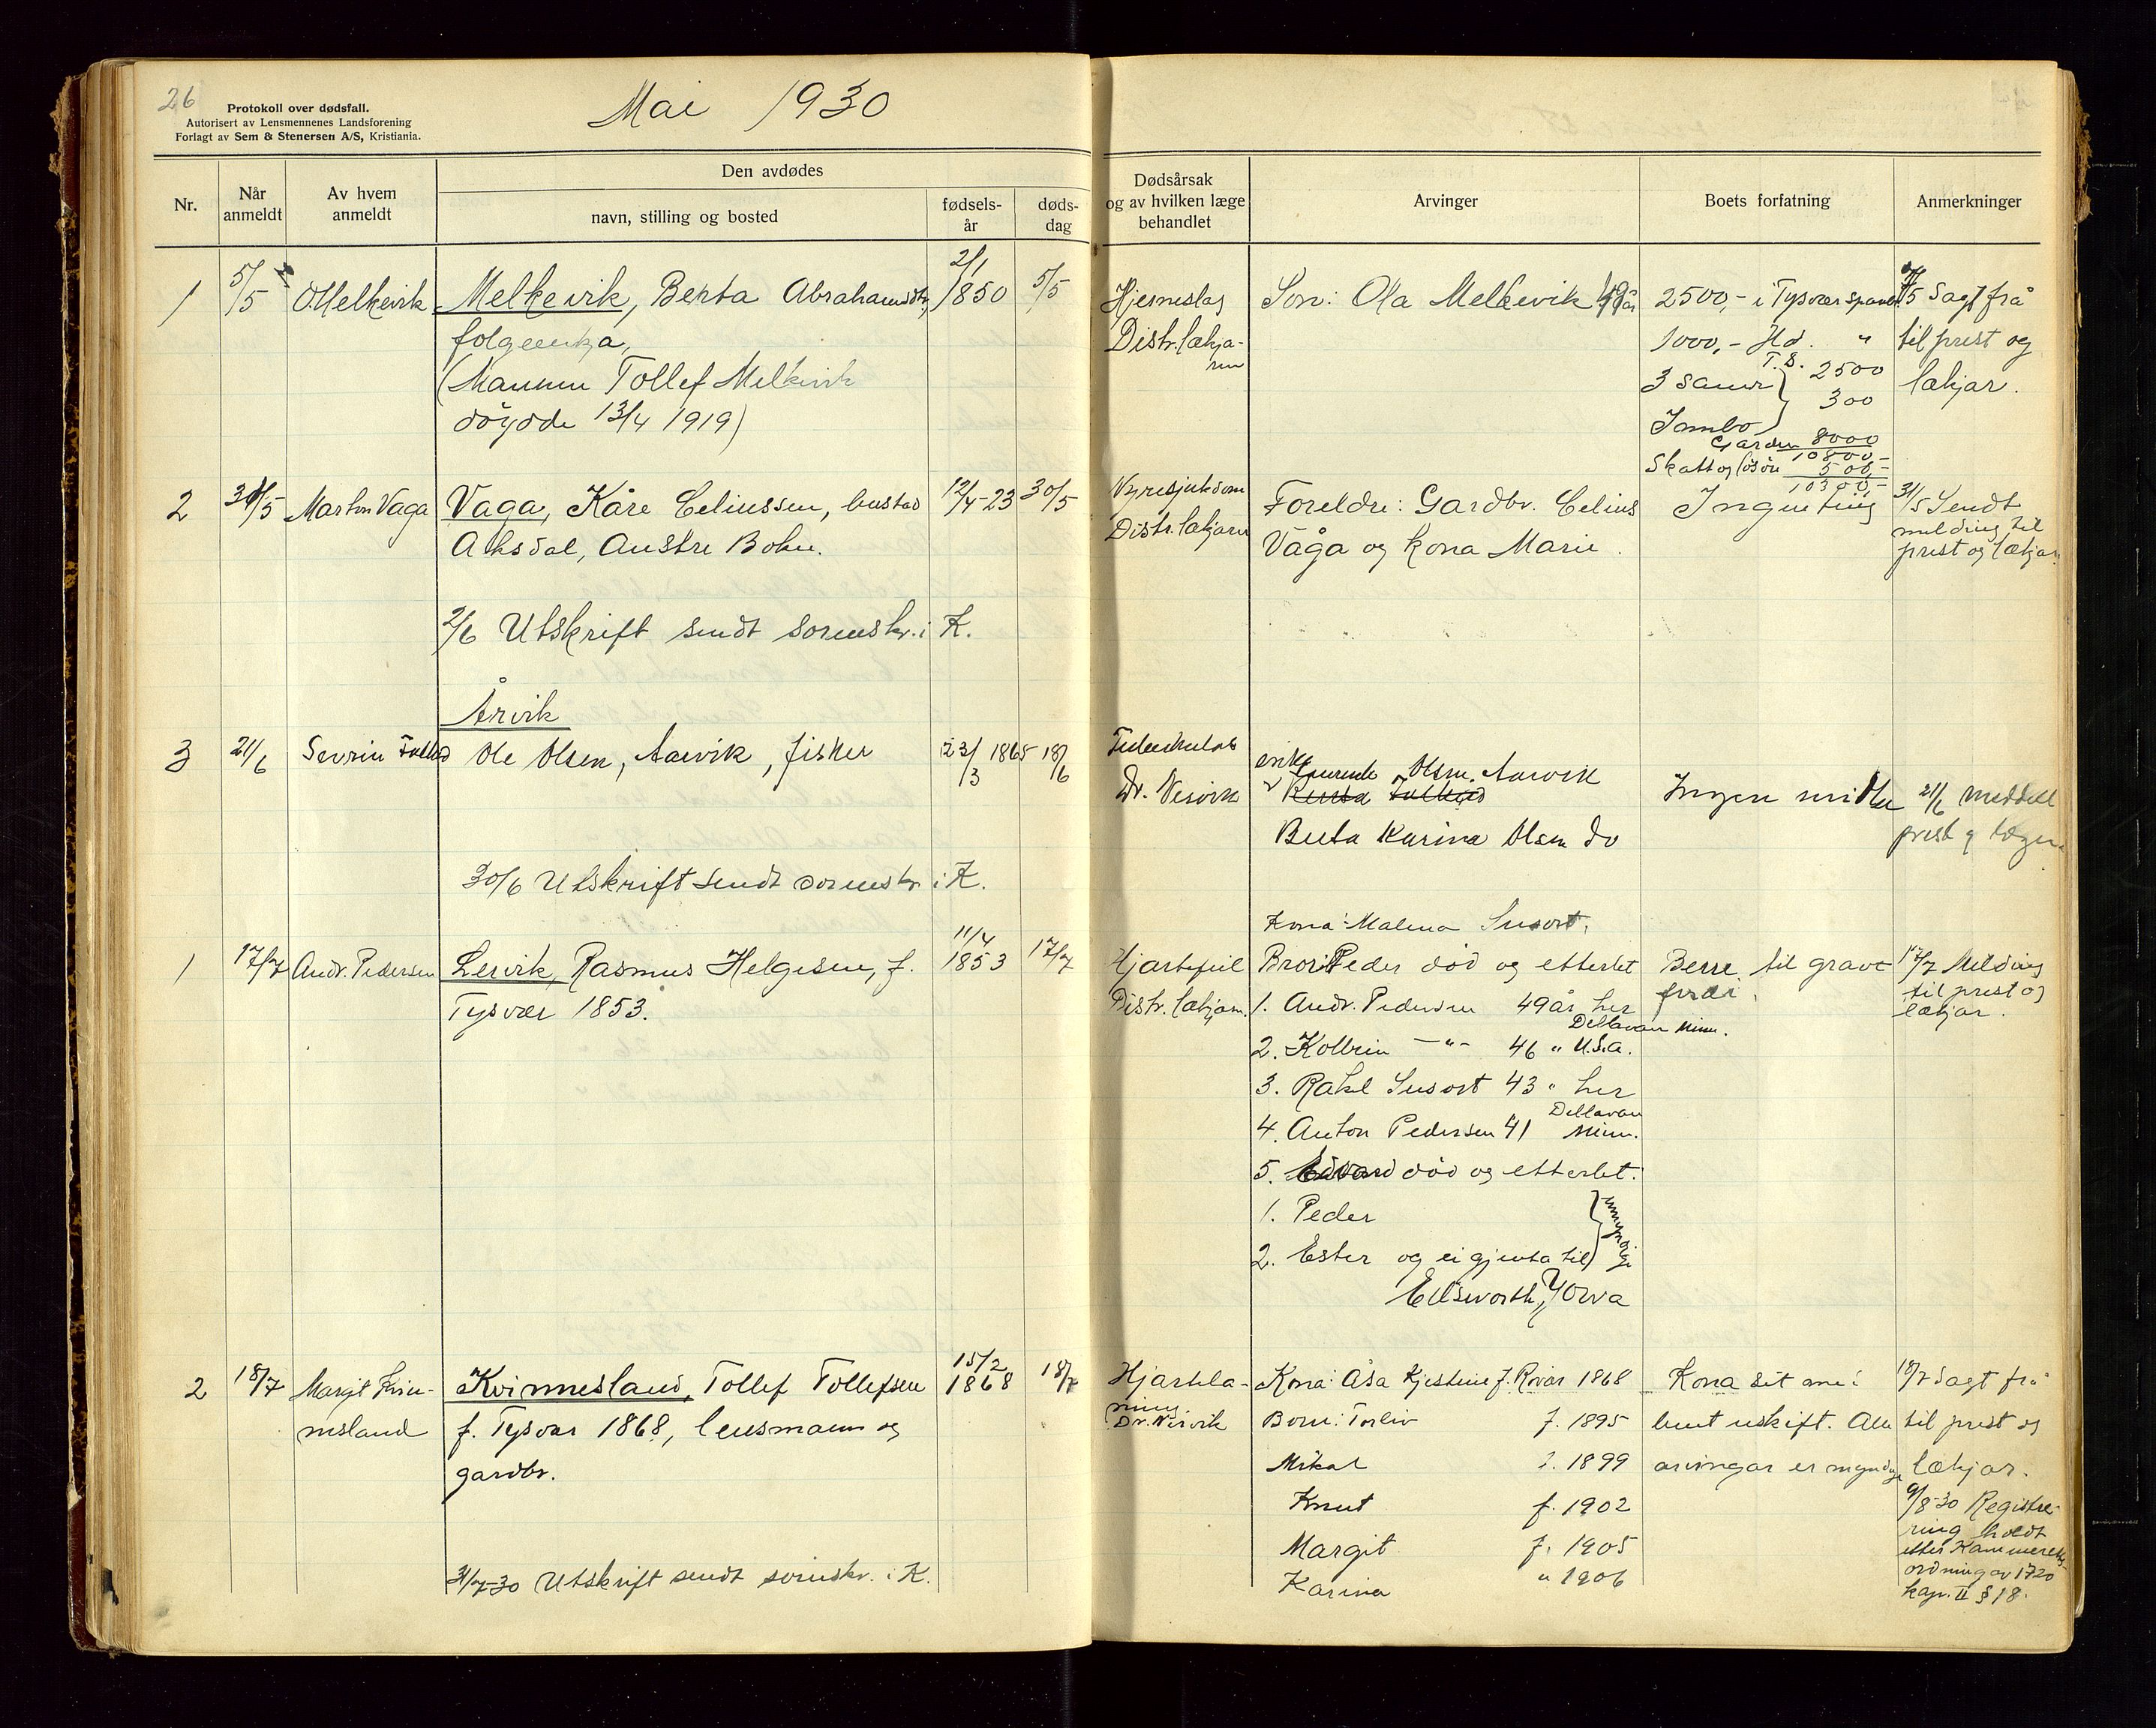 26
Protokoll over dødsfall.
Autorisert av Lensmennenes Landsforening
Forlagt av Sem & Stenersen A/S, Kristiania.
Mai 1930
Nr.
Når anmeldt
Av hvem anmeldt
Den avdødes
navn, stilling og bosted
fødsels-år
døds-dag
Dødsårsak og av hvilken læge behandlet
Arvinger
Boets forfatning
Anmerkninger
1 5/5 O. Melkevik Melkevik, Berta Abrahamsdtr, 2/1 1850 5/5
folgeenkja,
(Mannen Tollef Melkevik
døydde 13/4 1919)
Hjerneslag
Distr. lækja-
ren
Son: Ola Melkevik 49 år
2500,- i Tysvær spareb.
1000,- Hd. "
T.S.
3 sauer } 2500
Innbo } 300
Garden 8000
10800,-
Skatt og løsøre 500,-
10300,-
5/5 Sagt frå
til prest og
lækjar.
2 31/5 Marton Vaga Vaga, Kåre Celiussen, bustad 12/4-23 30/5
Aksdal, Austre Bokn.
Nyresjukdom
Distr. lækjaren
Foreldre: Gardbr. Celius
Våga og kona Marie.
Ingenting
31/5 Sendt
melding til
prest og lækjar.
2/6 Utskrift sendt sorenskr. i K.
Årvik
3 21/6 Sevrin Ole Olsen, Aarvik, fisker 23/3 1865 18/6
Tuberkulos
Dr. Nervik
enke Laurende Olsen Aarvik
Berta Karina Olsen do
Ingen midler
21/6 meddelt
prest og lægen
30/6 Utskrift sendt sorenskr. i K.
Kona: Malena Susort.
1 17/7 Andr. Pedersen Lervik, Rasmus Helgesen, f. 11/4 1853 17/7
Tysvær 1853.
Hjartefeil
Distr. lækjaren.
Bror: Peder død og etterlet
1. Andr. Pedersen 49 år her
Dellavan Minn.
2. Kolbein -"- 46 " U.S.a.
3. Rakel Susort 43 " her
Dellavan
4. Anton Pedersen 41 Minn.
5. Edvard død og etterlet:
1. Peder
2. Ester og ei gjenta til } umyndige
Ellsworth, Jowa
Berre til grav-
ferdi.
17/7 Melding
til prest og
lækjar.
2 18/7 Margit Kvin- Kvinnesland, Tollef Tollefsen 15/2 1868 18/7
nesland f. Tysvær 1868, lensmann og
gardbr.
Hjartela-
ming.
Dr. Nervik
Kona: Åsa Kjestine f. Røvær 1868
Born: Torleiv f. 1895
Mikal f. 1899
Knut f. 1902
Margit f. 1905
Karina " 1906
Kona sit meί
buet uskift. Alle
arvingar er myndige
18/7 Sagt frå
til prest og
lækjar.
9/8-30 Registre-
ring holdt
etter Kammerets
ordning av 1720
kap. II § 18.
31/7-30 Utskrift sendt sorenskr. i K.